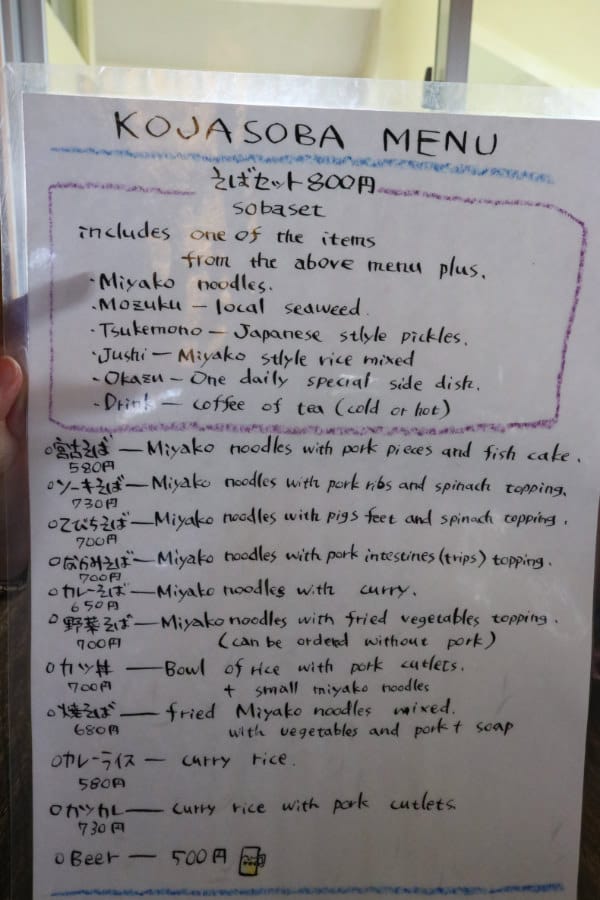 KOJASOBA MENU
そばセット800円
sobaset
includes one of the items
from the above menu plus.
・Miyako noodles.
・Mozuku – local seaweed.
・Tsukemono – Japanese stlyle pickles.
・Jushi – Miyako style rice mixed
・Okazu – One daily special side dish.
・Drink – coffee of tea (cold or hot)
○宮古そば — Miyako noodles with pork pieces and fish cake.
580円
○ソーキそば — Miyako noodles with pork ribs and spinach topping.
730円
○てびちそば — Miyako noodles with pigs feet and spinach topping.
700円
○なかみそば — Miyako noodles with pork intestines (trips) topping.
700円
○カレーそば — Miyako noodles with curry.
650円
○野菜そば — Miyako noodles with fried vegetables topping.
700円 (can be orderd without pork)
○カツ丼 — Bowl of rice with pork cutlets.
700円 + small miyako noodles
○焼そば — fried Miyako noodles mixed.
680円 with vegetables and pork + soap
○カレーライス — curry rice.
580円
○カツカレー — curry rice with pork cutlets
730円
○Beer — 500円